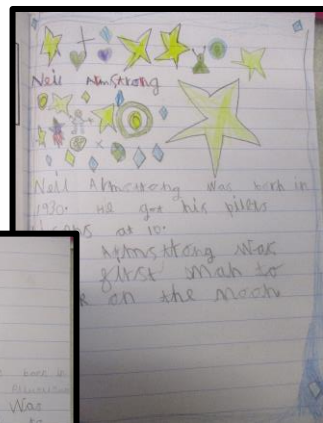 Neil Armstrong
Neil Armstrong was born in
1930. He got his pilets
at 10.
Armstrong Was
first man to
on the moon
Was